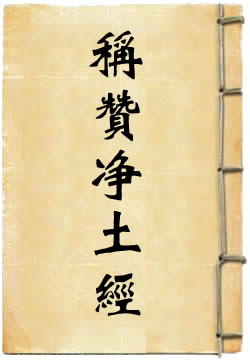 稱贊净土經